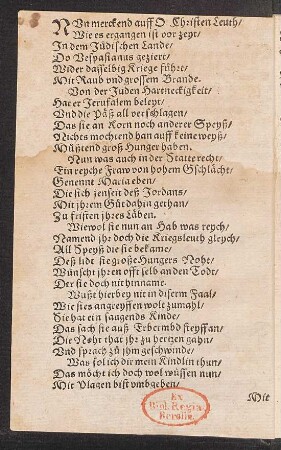 NVn merckend auff O Christen Leuth/
Wie es ergangen ist vor zeyt/
In dem Jüdischen Lande/
Do Vespasianus geziert/
Wider dasselbig Kriege führt/
Mit Raub vnd grossem Brande.
Von der Juden Hartneckigkeit/
Hat er Jerusalem beleyt/
Vnd die Päß all verschlagen/
Das sie an Korn noch anderer Speyß/
Nichts mochtend han auff keine weyß/
Müstend groß Hunger haben.
Nun was auch in der Statte recht/
Ein reyche Fraw von hohem Gschlächt/
Genennt Maria eben/
Die sich zenseit deß Jordans/
Mit jhrem Gütdahin gethan/
Zu fristen jhres Läben.
Wiewol sie nun an Hab was reych/
Namend jhr doch die Kriegsleuth gleych/
All Speyß die sie bekame/
Deß lidt sie große Hungers Noht/
Wünscht jhr en offt selb an den Todt/
Der sie doch nit hinname.
Wußt hierbey nit in diserm Faal/
Wie sies angreyffen wolt zumahl/
Sie hat ein saugends Kinde/
Das sach sie auß Erbermbd steyff an/
Die Noht that jhr zu hertzen gahn/
Vnd sprach zů jhm geschwinde/
Was sol ich dir mein Kindlin thun/
Das möcht ich doch wol wüssen nun/
Mit Plagen bist vmbgeben/
Mit
Ex
Bibl. Regia
Berolin.